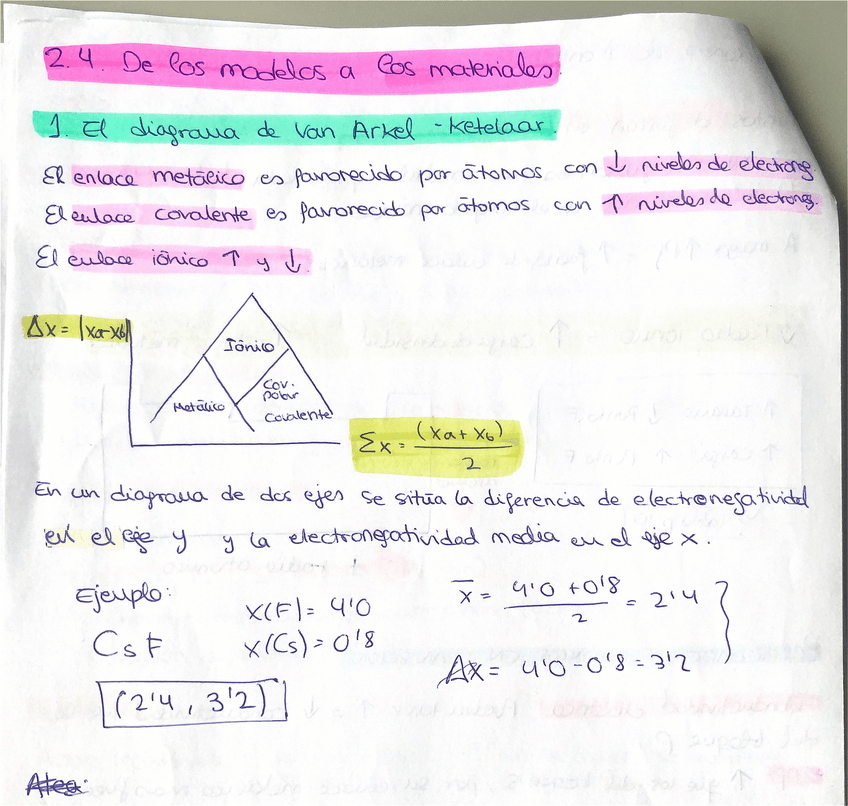 2.4. De los modelos a los materiales.
1. El diagrama de Van Arkel - Ketelaar.
El enlace metálico es favorecido por átomos con ↓ niveles de electroneg.
El enlace covalente es favorecido por átomos con ↑ niveles de electroneg.
El enlace iónico ↑ y ↓.
Δx = |xa-xb|
Iónico
Cov. polar
Metálico
Covalente
Σx = (xa + xb) / 2
En un diagrama de dos ejes se sitúa la diferencia de electronegatividad
en el eje y y la electronegatividad media en el eje x.
Ejemplo:
CsF
x(F) = 4'0
x(Cs) = 0'8
(2'4, 3'2)
x̄ = 4'0 + 0'8 / 2 = 2'4
Δx = 4'0 - 0'8 = 3'2